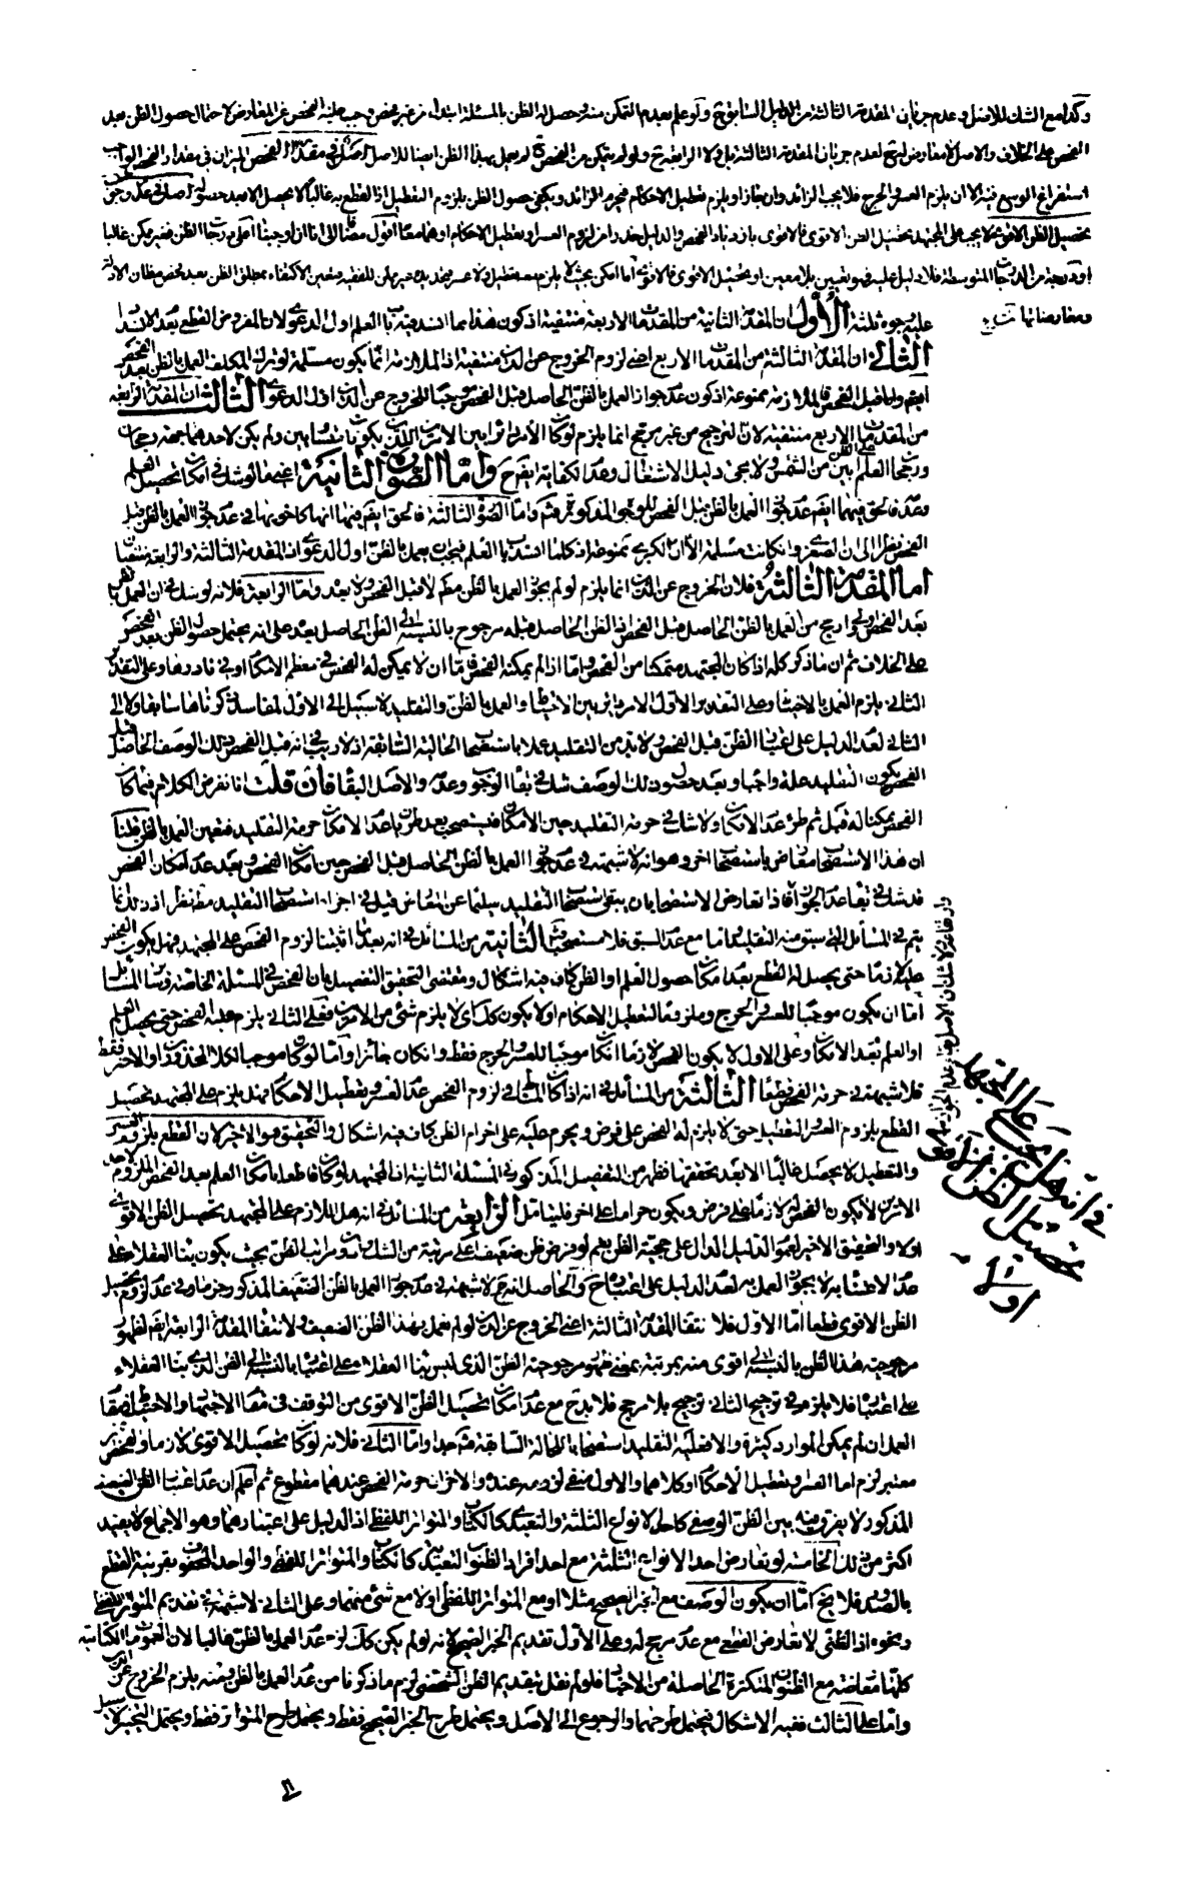 وكذا مع الشك للاصل وعدم جريان المقدمة الثالثة من الدليل السابق ح ولو علم بعدم التمكن منه وحصل له الظن بالمسئلة ابتداء من غير فحص وجب عليه الفحص عن المعارض لاحتمال حصول الظن بعد
الفحص على الخلاف والاصل لا معارض له ح لعدم جريان المقدمة الثالثة بل ولا الرابعة ح ولو لم يتمكن من الفحص لم يعمل بهذا الظن ايضا للاصل اصل في مقدار الفحص الميزان في مقدار الفحص الواجب
استفراغ الوسع فيه الا ان يلزم العسر والحرج فلا يجب الزائد وان جاز او يلزم تعطيل الاحكام فيحرم الزائد ويكفى حصول الظن بلزوم التعطيل اذ القطع به غالبا لا يحصل الا بعد حصوله اصل في عدم وجوب
تحصيل الظن الاقوى لا يجب على المجتهد تحصيل الظن الاقوى فالاقوى بازدياد الفحص والدليل عند امن لزوم العسر او تعطيل الاحكام او هما معا اقول مضافا الى انا ان اوجبنا اعلى درجات الظن فغير ممكن غالبا
او درجة من الدرجات المتوسطة فلا دليل عليه فهو تعيين بلا معين او تحصيل الاقوى فالاقوى ما امكن بحيث لا يلزم معه تعطيل ولا عسر فتعين الاكتفاء بمطلق الظن بعد فحص مظان الادلة
ومعارضاتها
عليه وجوه ثلثة الأول ان المقدمة الثانية من المقدمات الاربعة منتفية اذ كون هذا مما انسد فيه باب العلم اول الدعوى لان المفروض القطع بعد الانسداد
الثاني ان المقدمة الثالثة من المقدمات الاربع اعنى لزوم الخروج عن الدين منتفية اذ الملازمة انما يكون مسلمة لو ترك المكلف العمل بالظن بعد الفحص
ايضا واما قبل الفحص فالملازمة ممنوعة اذ كون عدم جواز العمل بالظن الحاصل قبل الفحص موجبا للخروج عن الدين اول الدعوى الثالث ان المقدمة الرابعة
من المقدمات الاربع منتفية لان الترجيح من غير مرجح انما يلزم لو كان الأمر دائرا بين الامرين اللذين يكونان متساويين ولم يكن لاحدهما جهة رجحان
ورجحان العلم على الظن ابين من الشمس ولا يجى دليل الاشتغال وعدم الكفاية ايضا ح واما الصورة الثانية اعنى ما لو شك في امكان تحصيل العلم
وعدمه فالحق فيهما ايضا عدم جواز العمل بالظن قبل الفحص للوجوه المذكورة ثم واما الصورة الثالثة فالحق ايضا فيها انها كاخويها في عدم جواز العمل بالظن قبل
الفحص نظرا الى ان الصغرى وان كانت مسلمة الا ان الكبرى ممنوعة اذ كلما انسد باب العلم فيجب العمل بالظن اول الدعوى اذ المقدمة الثالثة والرابعة منتفيتان
اما المقدمة الثالثة فلان الخروج عن الدين انما يلزم لو لم يجز العمل بالظن مطلقا لا قبل الفحص ولا بعده واما الرابعة فلانه لو شك في ان العمل بالظن
بعد الفحص اولى وارجح من العمل بالظن الحاصل قبل الفحص اذ الظن الحاصل قبله مرجوح بالنسبة الى الظن الحاصل بعده على انه يحتمل حصول الظن بعد الفحص
على الخلاف ثم ان ما ذكر كله اذا كان المجتهد متمكنا من الفحص واما اذا لم يمكنه الفحص فاما ان لا يمكن له الفحص في معظم الاحكام او في نادر منها وعلى التقدير
الثاني يلزم العمل بالاحتياط وعلى التقدير الأول الامر دائر بين الاحتياط والعمل بالظن والتقليد لا سبيل الى الاول لمفاسد ذكرناها سابقا ولا الى
الثاني لعدم الدليل على اعتبار الظن قبل الفحص ولا بد من التقليد عملا باستصحاب الحالة السابقة اذ لا ريب في انه قبل الفحص وذلك الوصف الحاصل قبل
الفحص يكون التقليد عليه واجبا وبعد حصول ذلك الوصف شك في بقاء الوجوب وعدمه والاصل البقاء فان قلت انا نفرض الكلام فيما كان
الفحص ممكنا له قبل ثم طرء عدم الامكان ولا شك في حرمة التقليد حين الامكان فيستصحب بعد طريان عدم الامكان حرمة التقليد فيتعين العمل بالظن قلنا
ان هذا الاستصحاب معارض باستصحاب اخر وهو انه لا شبهة في عدم جواز العمل بالظن الحاصل قبل الفحص حين امكان الفحص وبعد عدم امكان الفحص
قد شك في بقاء عدم الجواز فاذا تعارض الاستصحابان يبقى استصحاب التقليد سليما عن المعارض قيل في اجراء استصحاب التقليد مطلقا نظر اذ ذلك انما
يتم في المسائل التي سبق منه التقليد فيها واما مع عدم السبق فلا مستصحب الثانية من المسائل في انه بعد ما اثبتنا لزوم الفحص على المجتهد فهل يكون الفحص
عليه لازما حتى يحصل له القطع بعدم امكان حصول العلم او الظن كاف فيه اشكال ومقتضى التحقيق التفصيل بان الفحص في المسئلة الخاصة وبين المسائل
اما ان يكون موجبا للعسر والحرج وملزوما لتعطيل الاحكام او لا يكون كذلك اى لا يلزم شئ من الامرين فعلى الثاني يلزم عليه الفحص حتى يحصل العلم
او العلم بعدم الامكان وعلى الاول لا يكون الفحص لازما اذا كان موجبا للعسر والحرج فقط وان كان جائزا واما لو كان موجبا لكلا المحذورين او الاخير فقط
فلا شبهة في حرمة الفحص قطعا الثالثة من المسائل في انه اذا كان المناط في لزوم الفحص عدم العسر وتعطيل الاحكام فهل يلزم على المجتهد تحصيل
القطع بلزوم العسر والتعطيل حتى لا يلزم له الفحص على فرض ويحرم عليه على اخر ام الظن كاف فيه اشكال والتحقيق هو الاخير لان القطع بلزوم العسر
والتعطيل لا يحصل غالبا الا بعد تحققهما فظهر من التفصيل المذكور في المسئلة الثانية ان المجتهد لو كان قاطعا بامكان العلم بعد الفحص الملزوم لاحد
الامرين لا يكون الفحص له لازما على فرض ويكون حراما على اخر فليتامل الرابعة من المسائل في انه هل اللازم على المجتهد تحصيل الظن الاقوى
اولا والتحقيق الاخير لعموم الدليل الدال على حجية الظن نعم لو فرض ظن ضعيف اعلى مرتبة من الشك وادون مراتب الظن بحيث يكون بناء العقلاء على
عدم الاعتناء به لا يجوز العمل به لعدم الدليل على اعتباره ح والحاصل انه ح لا شبهة في عدم جواز العمل بالظن الضعيف المذكور وجزما وفي عدم لزوم تحصيل
الظن الاقوى قطعا اما الاول فلانتفاء المقدمة الثالثة اعنى الخروج عن الدين لو لم نعمل بهذا الظن الضعيف ولانتفاء المقدمة الرابعة ايضا لظهور
مرجوحية هذا الظن بالنسبة الى اقوى منه بمرتبة بمعنى ظهور مرجوحية الظن الذي ليس بناء العقلاء على اعتباره بالنسبة الى الظن الذي بناء العقلاء
على اعتباره فلا يلزم في ترجيح الثاني ترجيح بلا مرجح فلا بد ح مع عدم امكان تحصيل الظن الاقوى من التوقف في مقام الاجتهاد والاحتياط في مقام
العمل ان لم يكن الموارد كثيرة والا فعليه التقليد استصحابا للحالة السابقة واما الثاني فلانه لو كان تحصيل الاقوى لازما والفحص
معتبر لزم اما العسر او تعطيل الاحكام او كلاهما والاول منفى لزومه عندنا والاخران حرمة الفحص عندهما مقطوع ثم اعلم ان عدم اعتبار الظن الضعيف
المذكور لا يفرق فيه بين الظن الوصفي كاحد الانواع الثلثة والتعبدي كالكتاب والمتواتر اللفظي اذ الدليل على اعتبارهما هو الاجماع لا يفيد
اكثر من ذلك الخامسة لو تعارض احد الانواع الثلثة مع احد افراد الظنون التعبدية كالكتاب والمتواتر اللفظي والواحد المحفوف بقرينة القطع
بالصدور فلا يخ اما ان يكون الوصف مع الخبر الصحيح مثلا او مع المتواتر اللفظي او لا مع شئ منهما وعلى الثاني لا شبهة في تقديم المتواتر اللفظي
ونحوه اذ الظني لا تعارض القطعي مع عدم مرجح له وعلى الأول تقديم الخبر الصحيح لانه لو لم يكن كذلك لزم عدم العمل بالظن غالبا لان العمومات الكتابية
كلها متعارضة مع الظنون المتكثرة الحاصلة من الاخبار فلو لم نقل بتقديم الظن الشخصى لزم ما ذكرنا من عدم العمل بالظن ومنه يلزم الخروج عن الدين
واما على الثالث ففيه الاشكال فيحتمل طرحهما والرجوع الى الاصل ويحتمل طرح الخبر الصحيح فقط ويحتمل طرح المتواتر فقط ويحتمل التخيير لا سبيل
في انه هل يجب على المجتهد
تحصيل الظن الاقوى
او لا
الى